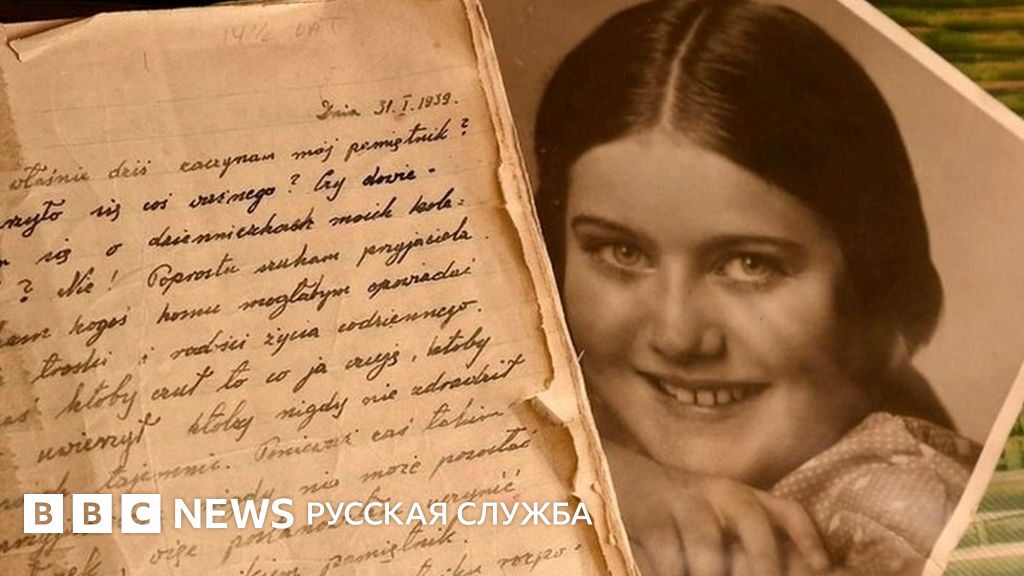 14½ LAT
Dnia 31.I.1939.
właśnie dziś zaczynam mój pamiętnik?
się coś ważnego? Czy dowie-
się o dzienniczkach moich kole-
? Nie! Poprostu szukam przyjaciela.
kogoś komu mogłabym opowiadać
troski i radości życia codziennego.
ktoby czuł to co ja czuję, ktoby
uwierzył ktoby nigdy nie zdradził
tajemnic. Ponieważ zaś takim
nie może pozostać
więc uczynić
pamiętnik.
rozpo-
BBC NEWS РУССКАЯ СЛУЖБА